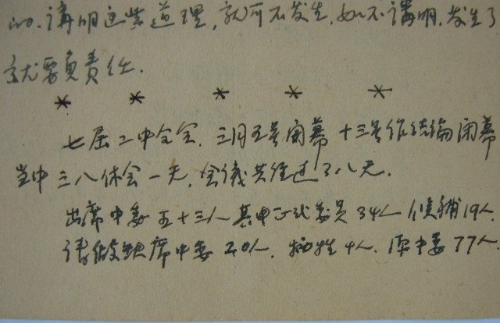 的. 講明這些道理, 就可不发生, 如不講明, 发生了
就要負責任.
* * * * *
七屆二中全会, 三月五号開幕 十三号作結論閉幕
当中三八休会一天, 会議共経过了八天.
出席中委五十三人 其中正式委員 34人 候補 19人
請假缺席中委 20人, 牺牲 4人, 原中委 77人.